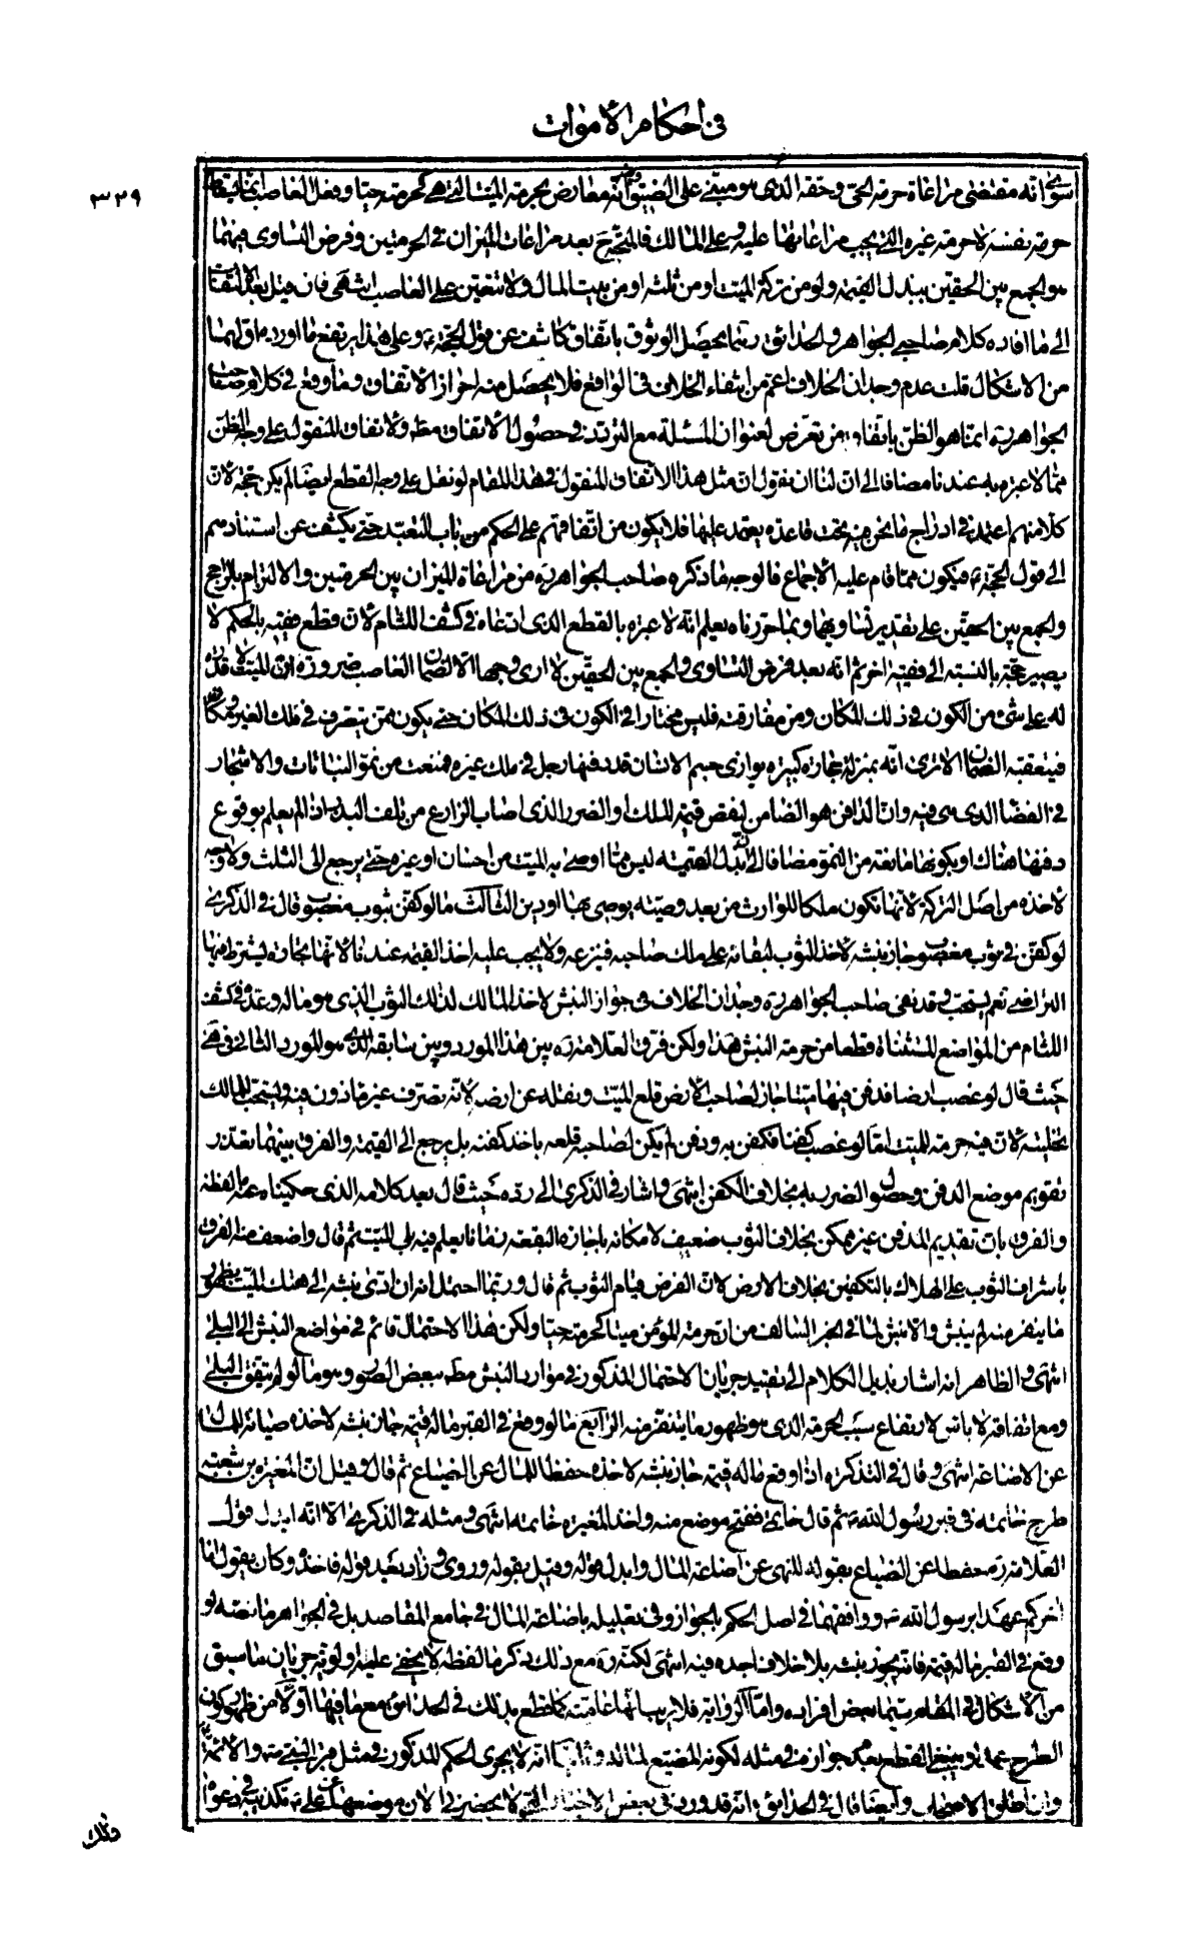 في احكام الأموات
٣٣٩
انه مقتضى مراعاة حرمة الحي وحقه الذى هو مبنى على الضيق انه معارض بحرمة الميت التي هي كحرمته حيا وفعل الغاصب انما يسقط
حرمة نفسه لا حرمة غيره التي يجب مراعاتها عليه وعلى المالك فالمتجه ح بعد مراعات الميزان في الحرمتين وفرض التساوى فيهما
هو الجمع بين الحقين ببذل القيمة ولو من تركة الميت او من ثلثه او من بيت المال ولا تتعين على الغاصب انتهى فان قيل بعد الالتفات
الى ما افاده كلام صاحبي الجواهر والحدائق ربما يحصل الوثوق باتفاق كاشف عن قول الحجة ع وعلى هذا يرتفع ما اورد ما قلهما
من الاشكال قلت عدم وجدان الخلاف اعم من انتفاء الخلاف في الواقع فلا يحصل منه احراز الاتفاق وما وقع في كلام صاحب
الجواهر ره انما هو الظن باتفاق من تعرض لعنوان المسئلة مع التردد في حصول الاتفاق مط ولا اتفاق المنقول على وجه الظن
مما لا عبرة به عندنا مضافا الى ان لنا ان نقول ان مثل هذا الاتفاق المنقول في هذا المقام لو نقل على وجه القطع ايضا لم يكن حجة لان
كلا منهم اعتمد في ادراج ما نحن فيه تحت قاعدة يعتمد عليها فلا يكون من اتفاقهم على الحكم من باب التعبد حتى يكشف عن استنادهم
الى قول الحجة ع فيكون مما قام عليه الأجماع فالوجه ما ذكره صاحب الجواهر ره من مراعاة الميزان بين الحرمتين والالتزام بالراجح
والجمع بين الحقين على تقدير تساويهما وبما حررناه يعلم انه لا عبرة بالقطع الذى ادعاه في كشف اللثام لان قطع فقيه بالحكم لا
يصير حجة بالنسبة الى فقيه اخر ثم انه بعد فرض التساوى والجمع بين الحقين لا ارى وجها الا لضمان الغاصب ضرورة ان الميت لا قدرة
له على شئ من الكون في ذلك المكان ومن مفارقته فليس مختارا في الكون في ذلك المكان حتى يكون ممن يتصرف في ملك الغير
فيتعقبه الضمان الا ترى انه بمنزلة حجارة كبيرة يوازى جسم الانسان قد دفنها رجل في ملك غيره فمنعت من نمو النباتات والاشجار
في الفضا الذى هى فيه وان الدافن هو الضامن لنقص قيمة الملك او الضرر الذى اصاب الزارع من تلف البذر اذا لم يعلم بوقوع
دفنها هناك او بكونها مانعة من النمو مضافا الى ان بذل القيمة ليس مما اوصى به الميت من احسان او غيره حتى يرجع الى الثلث ولا وجه
لأخذه من اصل التركة لانها تكون ملكا للوارث من بعد وصية يوصى بها او دين الثالث ما لو كفن بثوب مغصوب قال في الذكرى
لو كفن في ثوب مغصوب جاز نبشه لاخذ الثوب لبقائه على ملك صاحبه فينزعه ولا يجب عليه اخذ القيمة عندنا لانها تجارة يشترط فيها
التراضى نعم يستحب وقد نفى صاحب الجواهر ره وجدان الخلاف في جواز النبش لاخذ المالك لذلك الثوب الذى هو ماله وعده في كشف
اللثام من المواضع المستثناة قطعا من حرمة النبش هذا ولكن فرق العلامة ره بين هذا المورد وبين سابقه الذى هو المورد الثاني في هى
حيث قال لو غصب ارضا فدفن فيها ميتا جاز لصاحب الأرض قلع الميت ونقله عن ارضه لانه تصرف غير مأذون فيه ويستحب للمالك
تخليته لان فيه حرمة للميت اما لو غصب كفنا فكفن به ودفن لم يكن لصاحبه قلعه باخذ كفنه بل يرجع الى القيمة والفرق بينهما تعذر
تقويم موضع الدفن وحصول الضرر به بخلاف الكفن انتهى واشار في الذكرى الى رده حيث قال بعد كلامه الذى حكيناه عنه ما لفظه
والفرق بان تقديم المدفن غير ممكن بخلاف الثوب ضعيف لامكانه باجارة البقعة زمانا يعلم فيه بلى الميت ثم قال واضعف منه الفرق
باشراف الثوب على الهلاك بالتكفين بخلاف الارض لان الفرض قيام الثوب ثم قال وربما احتمل انه ان ادى نبشه الى هتك الميت بظهور
ما ينفر منه لم ينبش والا نبش لما في الخبر السالف من ان حرمة المؤمن ميتا كحرمته حيا ولكن هذا الاحتمال قائم في مواضع النبش الا البلى
انتهى والظاهر انه اشار بذيل الكلام الى تقييد جريان الاحتمال المذكور في موارد النبش مط ببعض الصور وهو ما لو لم يتفق البلى
ومع اتفاقه لا باس لارتفاع سبب الحرمة الذى هو ظهور ما يتنفر منه الرابع ما لو وقع في القبر ما له قيمة جاز نبشه لاخذه صيانة للمال
عن الاضاعة انتهى وقال في التذكرة اذا وقع ما له قيمة جاز نبشه لاخذه حفظا للمال عن الضياع ثم قال وقيل ان المغيرة بن شعبة
طرح خاتمه في قبر رسول الله ص ثم قال خاتمى ففتح موضع منه واخذ المغيرة خاتمه انتهى ومثله في الذكرى الا انه ابدل قول
العلامة ره حفظا عن الضياع بقوله للنهى عن اضاعة المال وابدل قوله وقيل بقوله وروى وزاد بعد قوله فاخذه وكان يقول انا
اخركم عهدا برسول الله ص ووافقهما في اصل الحكم بالجواز وفى تعليله باضاعة المال في جامع المقاصد بل في الجواهر ما نصه لو
وقع في القبر ما له قيمة فانه يجوز نبشه بلا خلاف اجده فيه انتهى لكنه ره مع ذلك ذكر ما لفظه لا يخفى عليك اولوية جريان ما سبق
من الأشكال في المقام سيما بعض افراده واما الرواية فلا ريب انها عامية كما قطع بذلك في الحدائق مع ما فيها اولا من ظهور كون
الطرح عمدا وينبغى القطع بعدم جوازه في مثله لكونه المضيع لماله وثانيا انه لا يجرى الحكم المذكور في مثل قبر النبي ص والائمة ع
وان اطلق الاصحاب وايضا قال في الحدائق انه قد ورد في بعض الاخبار التى لا يحضرنى الان موضعها عن علي ع تكذيبه في دعواه
وذلك